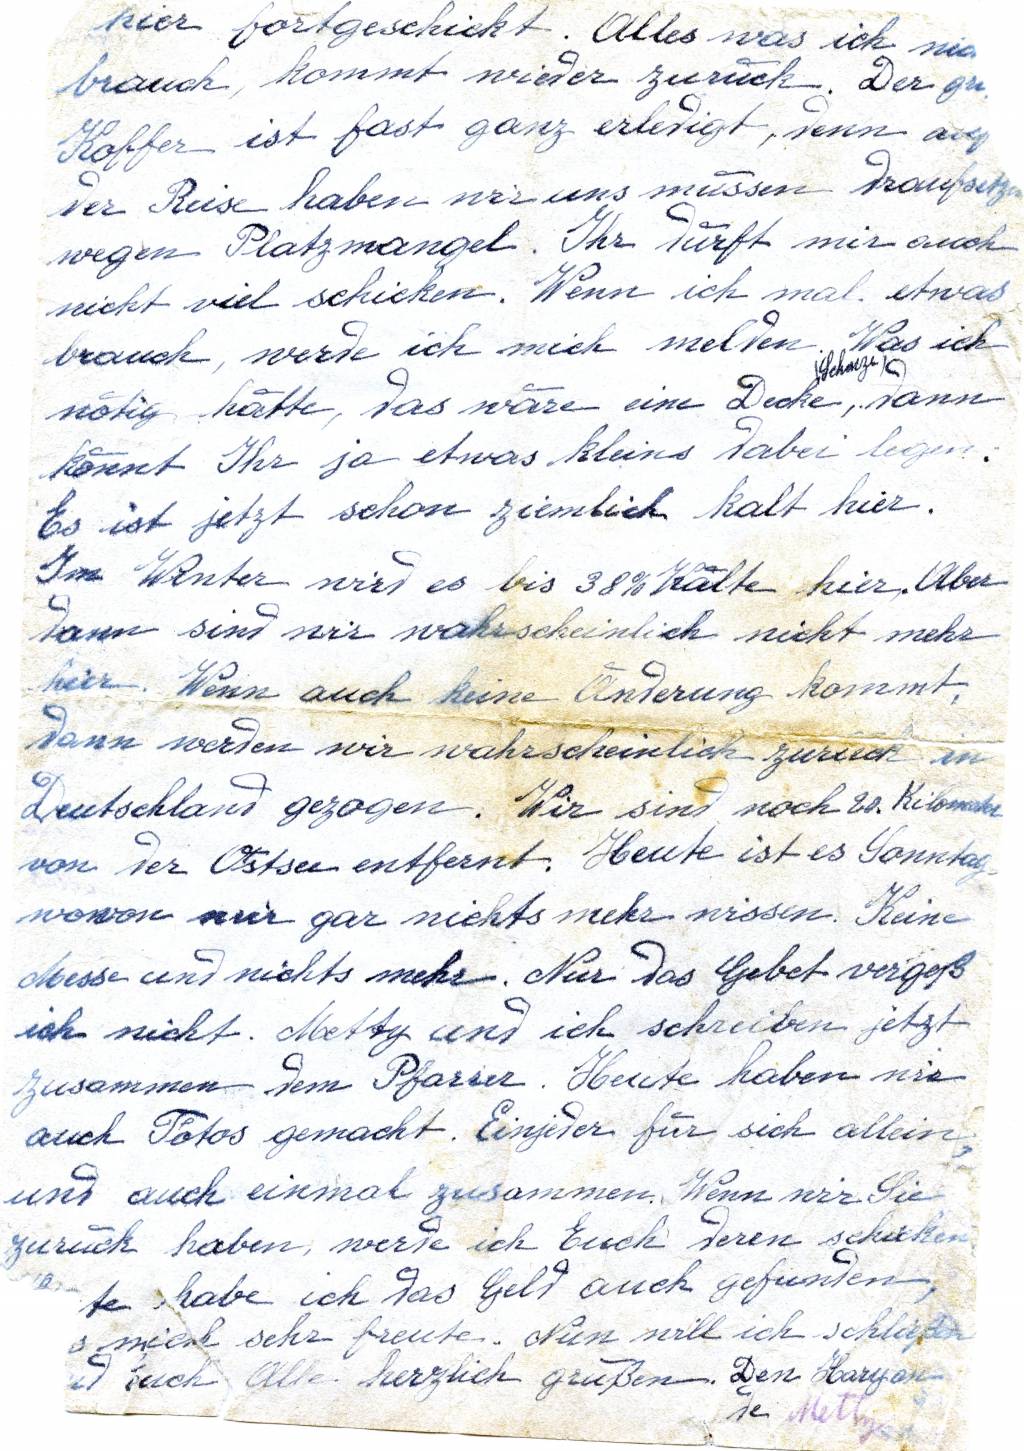 hier fortgeschickt. Alles was ich
brauch, kommt wieder zurück. Der
Koffer ist fast ganz erledigt, denn auf
der Reise haben wir uns müssen draufsetzen
wegen Platzmangel. Ihr dürft mir auch
nicht viel schicken. Wenn ich mal. etwas
brauch, werde ich mich melden. Was ich
nötig hätte, das wäre eine Decke, dann
könnt Ihr ja etwas kleins dabei legen.
Es ist jetzt schon ziemlich kalt hier.
Im Winter wird es bis 38% Kälte hier. Aber
dann sind wir wahrscheinlich nicht mehr
hier. Wenn auch keine Änderung kommt,
dann werden wir wahrscheinlich zurück in
Deutschland gezogen. Wir sind noch 20. Kilometer
von der Ostsee entfernt. Heute ist es Sonntag
wovon wir gar nichts mehr wissen. Keine
Messe und nichts mehr. Nur das Gebet vergeß
ich nicht. Metty und ich schreiben jetzt
zusammen dem Pfarrer. Heute haben wir
auch Fotos gemacht. Einjeder für sich allein,
und auch einmal zusammen. Wenn wir Sie
zurück haben, werde ich Euch deren schicken
te habe ich das Geld auch gefunden,
s mich sehr freute. Nun will ich schließen
nd Euch Alle herzlich grüßen. Den
de Metty